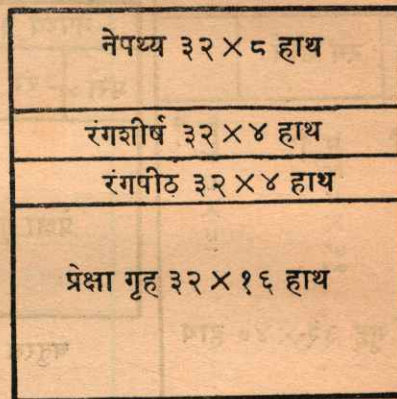 नेपथ्य ३२×८ हाथ
रंगशीर्ष ३२×४ हाथ
रंगपीठ ३२×४ हाथ
प्रेक्षा गृह ३२×१६ हाथ